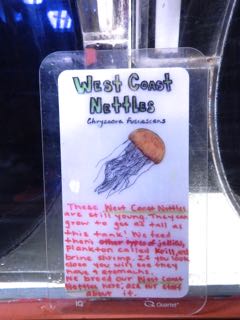 West Coast
Nettles
Chrysaora fuscescens
These West Coast Nettles
are still young. They can
grow to get as tall as
this tank! We feed
them other types of jellies,
plankton called krill, and
brine shrimp. If you look
close you will see they
have 4 stomachs.
We breed our West Coast
Nettles here, ask our staff
about it.
IQ
Quartet